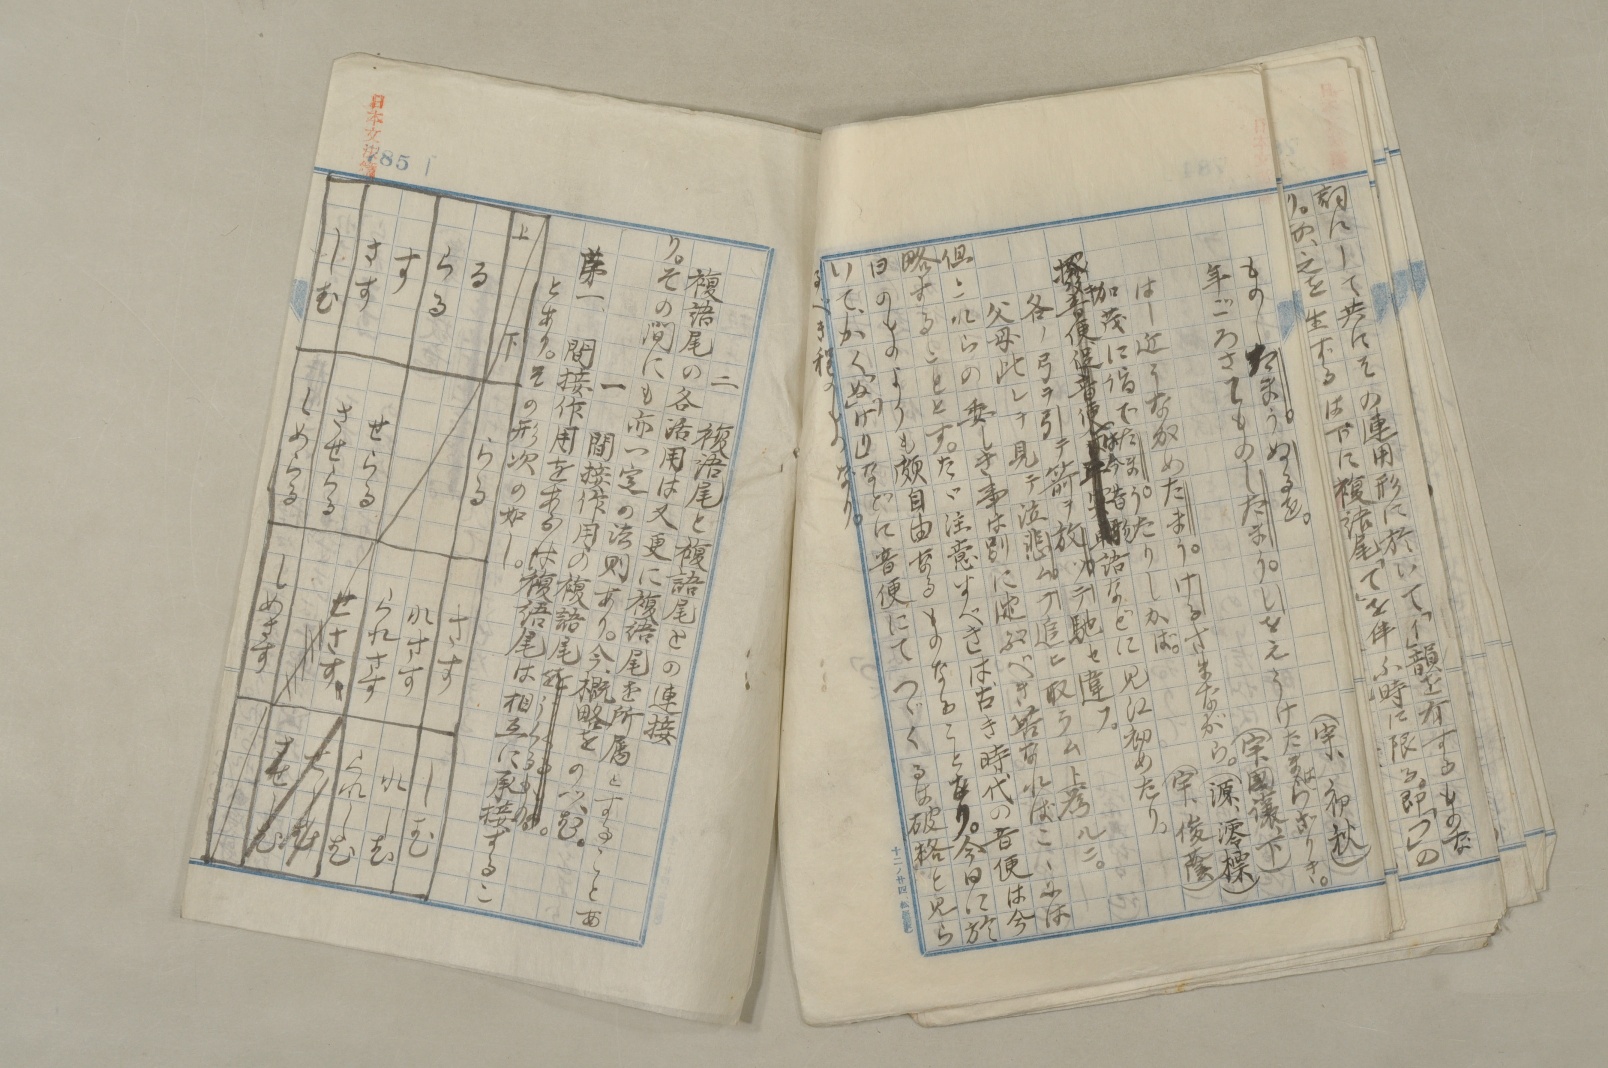 詞にして共にその連用形に於いて「イ」韻を有するものな
り。かゝえを生ずるは下に複語尾「て」を伴ふ時に限る。即「つ」の
(宇、初秋)
ものしたまうぬるを。
年ごろさてものしたまう。しをえうけたまはらざりき。
(宇、国譲下)
はし近うなめたまう。けるさまながら。(源、澪標)
加茂に詣でたまう。たりしかば。(宇、俊蔭)
撥音便促音便は今昔物語などに見江初めたり。
各ノ弓ヲ引テ箭ヲ放ツテ馳セ違フ。
父母此レヲ見テ泣悲ムデ追ヒ取ラムト為ルニ。
但これらの委しき事は別に述ぶべき筈なればこゝには
略することとす。たゞ注意すべきは古き時代の音便は今
日のものよりも頗自由なるものなることなり。今日に於
いて、かく「ぬ」「けり」などに音便にてつゞくるは破格と見ら
るべき程のものなり。
785
日本文法論
二 複語尾と複語尾との連接
複語尾の各活用は又更に複語尾を所属とすることあ
り。その間にも亦一定の法則あり。今、概略をのべむ。
一 間接作用の複語尾
第一、間接作用をあらはす複語尾は相互に承接するこ
とあり。その形次の如し。
上 下 らる さす しむ
る れさす れしむ
らる られさす られしむ
す せらる
さす させらる せさす させしむ
しむ しめらる しめさす